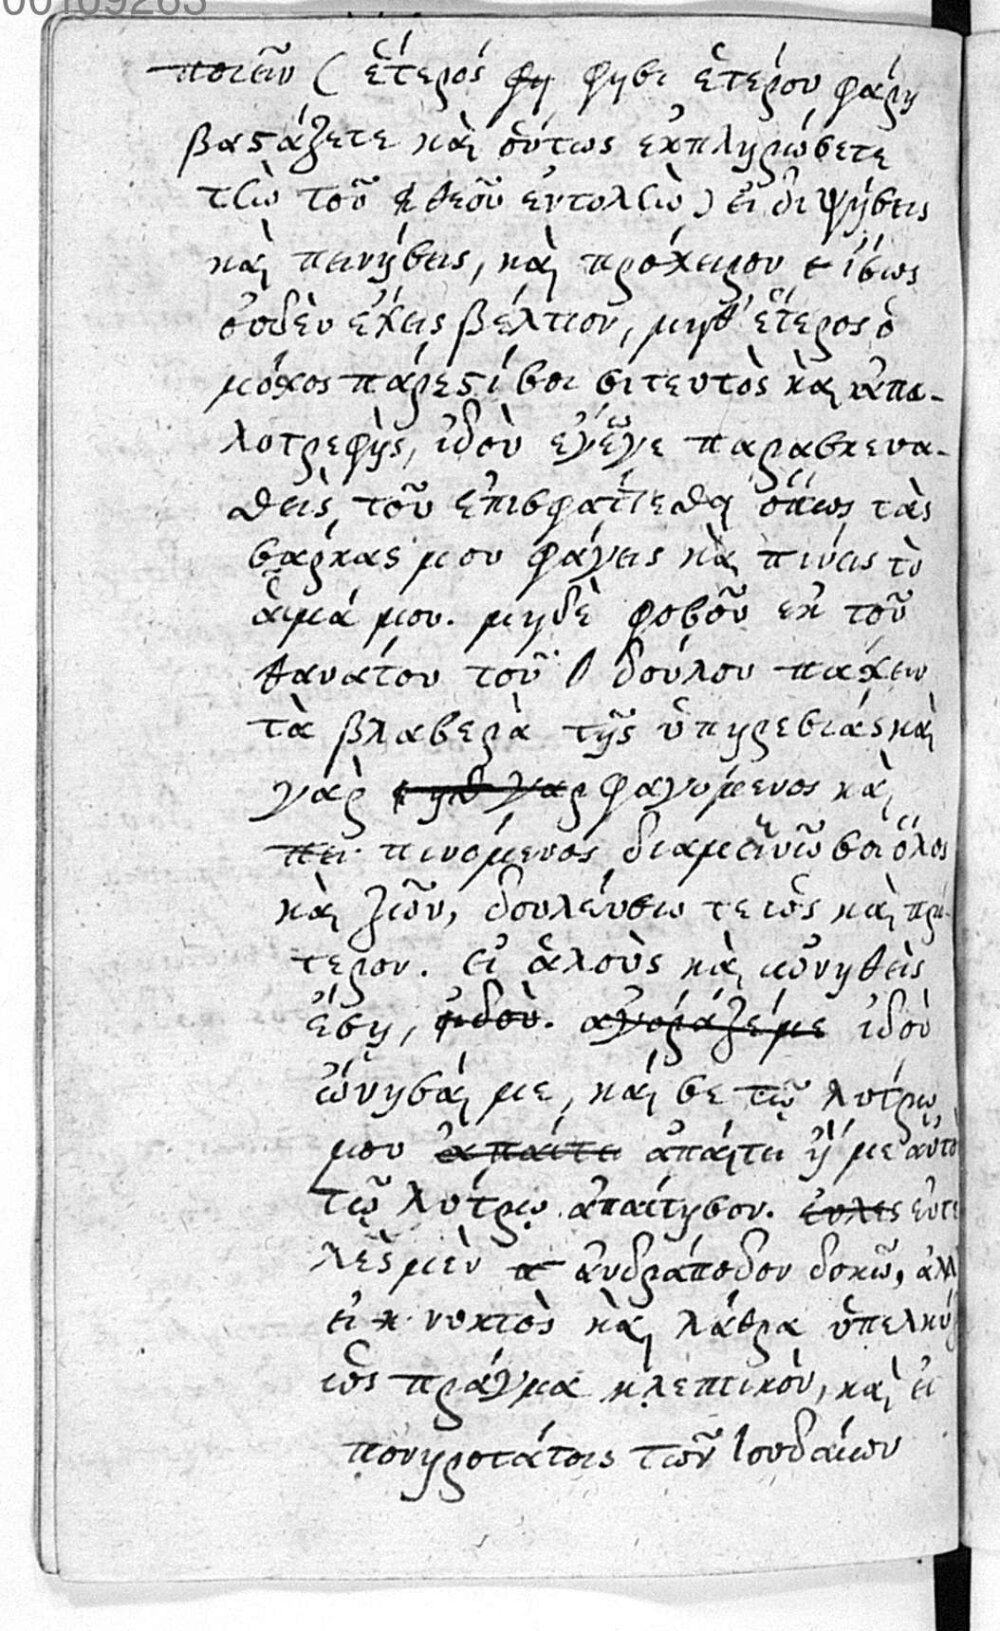 00109263
ποιεῖν ( ἕτερός φη φησι ἑτέρου φάρη
βαστάζετε καὶ οὕτως ἐκπληρώσετε
τὼ τοῦ θεοῦ ἐντολὼ ) εἰ διψήσεις
καὶ πεινήσεις, καὶ πρόχειρον ἴσως
οὐδὲν ἔχεις βέλτιον, μηθ' ἕτερος ὁ
μόχος πάρεστί σοι σιτευτὸς καὶ ἁπα-
λοτρεφὴς, ἰδοὺ ἐγὼγε παρασκευα-
θεὶς τοῦ ἐπισφάττεσθαι ὅπως τὰς
σάρκας μου φάγεις καὶ πίνεις τὸ
αἷμά μου. μηδὲ φοβοῦ ἐκ τοῦ
θανάτου τοῦ δούλου πάχειν
τὰ βλαβερὰ τῆς ὑπηρεσίας καὶ
γὰρ γαρ φαγόμενος καὶ
πει πινόμενος διαμείνω σοι ὅλος
καὶ ζῶν, δουλεύσω τε ὡς καὶ πρό-
τερον. εἰ ἁλοὺς καὶ ὠνηθεὶς
ἔσῃ, ἰδοὺ. αγοράζεμε ἰδοὺ
ὤνησαί με, καί σε τῷ λύτρῳ
μου απαιτει ἀπαίτει ἤ με αὐτὸ
τῷ λύτρῳ ἀπαίτησον. ευλες εὐτε
λὲς μὲν α ἀνδράποδον δοκῶ, ἀλλ
εἰ κ νυκτὸς καὶ λάθρα ὑπελκύ
ὡς πράγμα κλεπτικὸν, καὶ εἰ
πονηροτάτοις τῶν Ιουδαίων